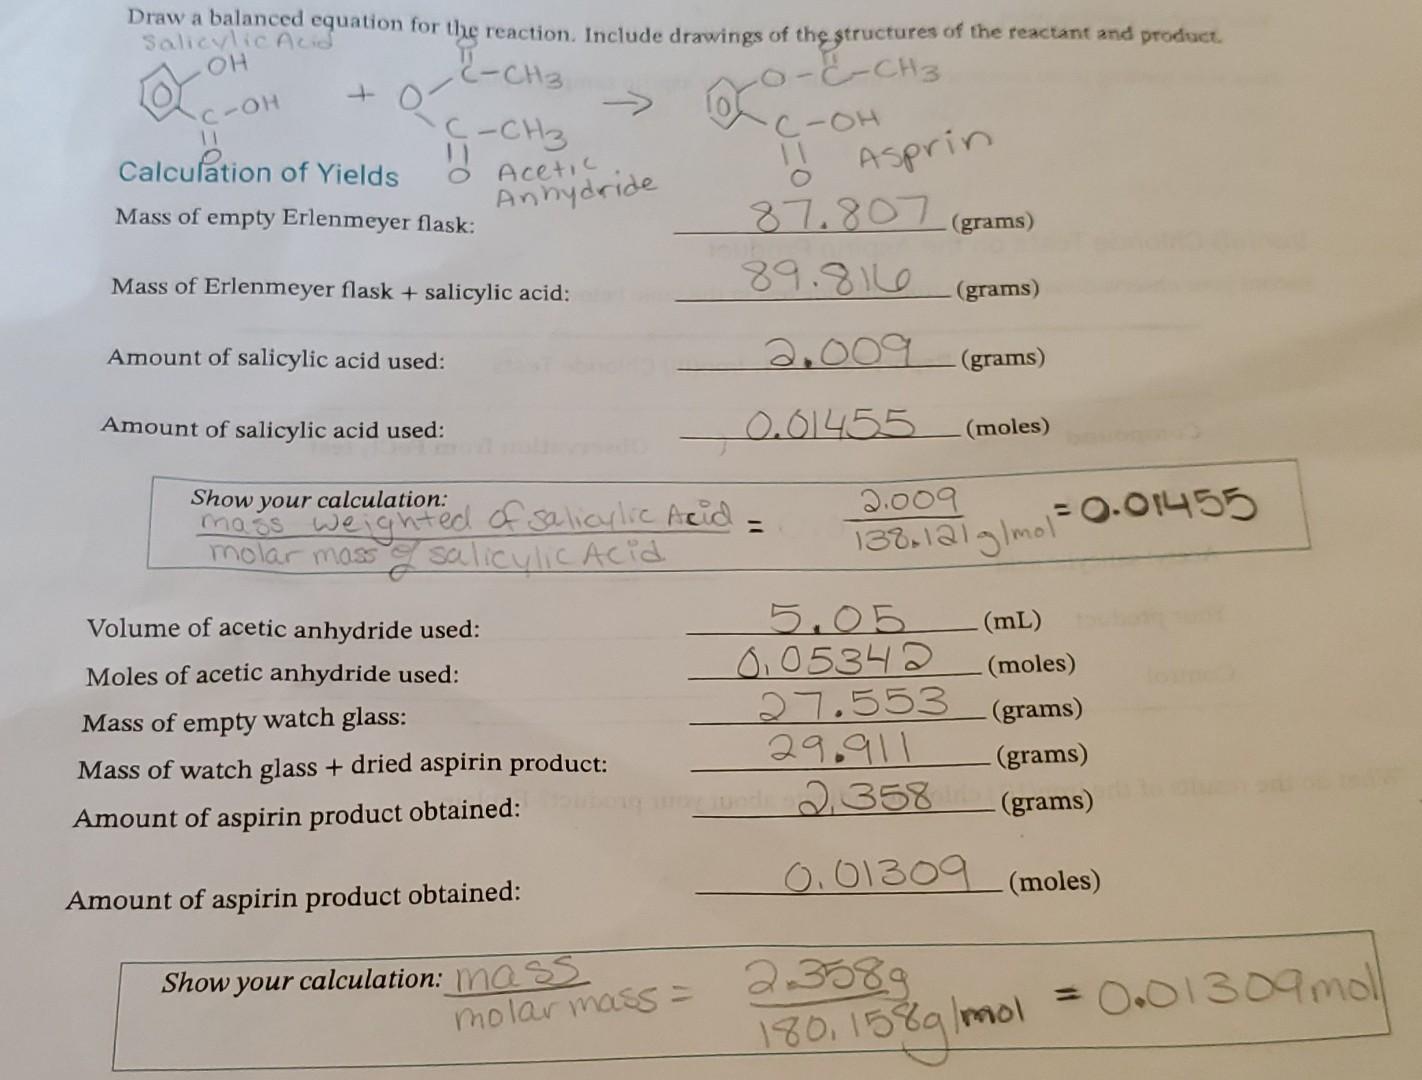 Draw a balanced equation for the reaction. Include drawings of the structures of the reactant and product.
Salicylic Acid
OH
C-OH
O
+
O
O
C-CH3
C-CH3
O
Acetic
Anhydride
→
O
O-C-CH3
C-OH
O
Asprin
Calculation of Yields
Mass of empty Erlenmeyer flask: 87.807 (grams)
Mass of Erlenmeyer flask + salicylic acid: 89.816 (grams)
Amount of salicylic acid used: 2.009 (grams)
Amount of salicylic acid used: 0.01455 (moles)
Show your calculation:
mass weighted of salicylic Acid = 2.009 = 0.01455
molar mass of salicylic Acid 138.121g/mol
Volume of acetic anhydride used: 5.05 (mL)
Moles of acetic anhydride used: 0.05342 (moles)
Mass of empty watch glass: 27.553 (grams)
Mass of watch glass + dried aspirin product: 29.911 (grams)
Amount of aspirin product obtained: 2.358 (grams)
Amount of aspirin product obtained: 0.01309 (moles)
Show your calculation: mass = 2.358g = 0.01309mol
molar mass 180.158g/mol